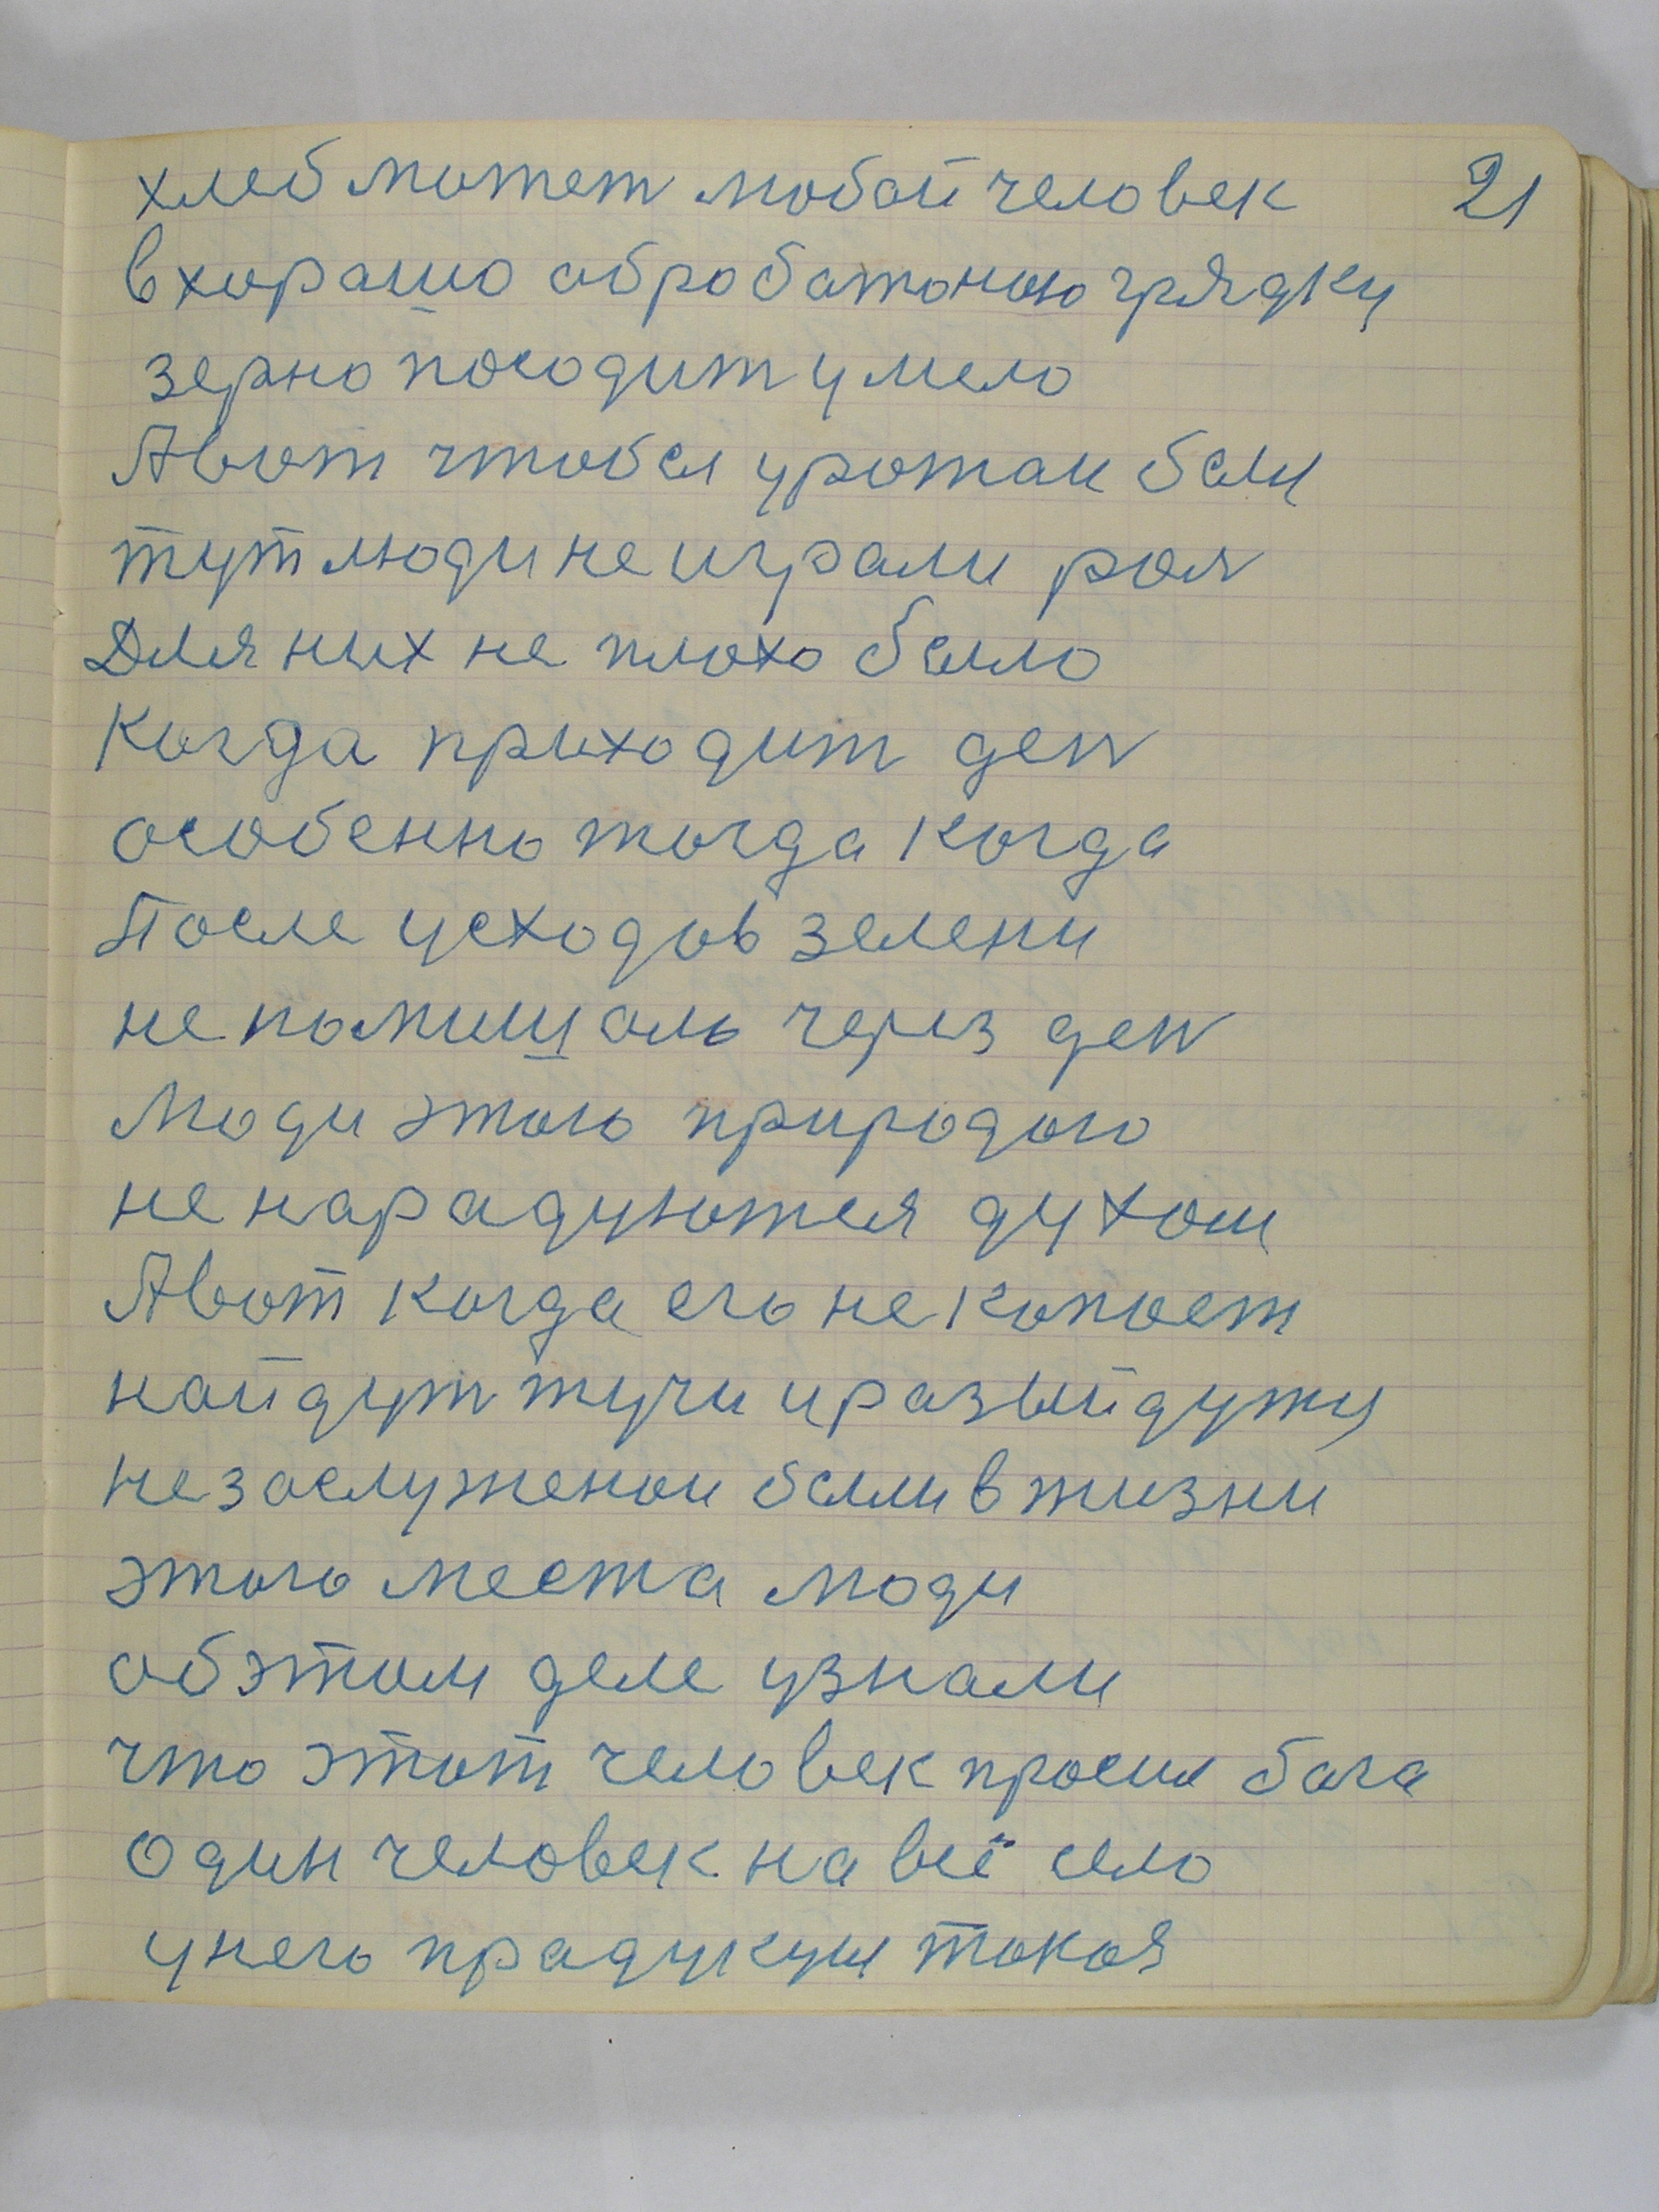 хлеб может любой человек 21
в хорошо обробатоною грядку
зерно посодит умело
А вот чтобы урожаи были
тут люди не играли рол
Для них не плохо было
Когда приходит ден
особенно тогда когда
После усходов зелени
не помишаль через ден
Люди этого природого
не нарадуются духом
А вот когда его не копоет
найдут тучи и разыйдуту
не заслуженои были в жизни
этого места люди
об этом деле узнали
что этот человек просил бога
один человек на всё село
у него прадукуия токоя